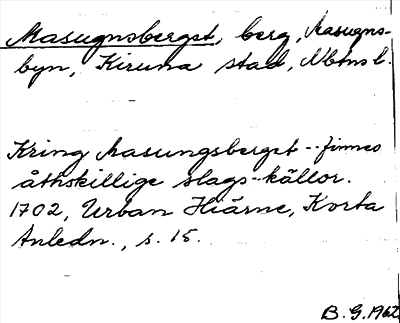 Masugnsberget, berg, Masugns-
byn, Kiruna stad, Nbtns l.
Kring Masungsberget -- finnes
åthskillige slags-källor.
1702, Urban Hiärne, Korta
Anledn., s. 15.
B. G. 1962